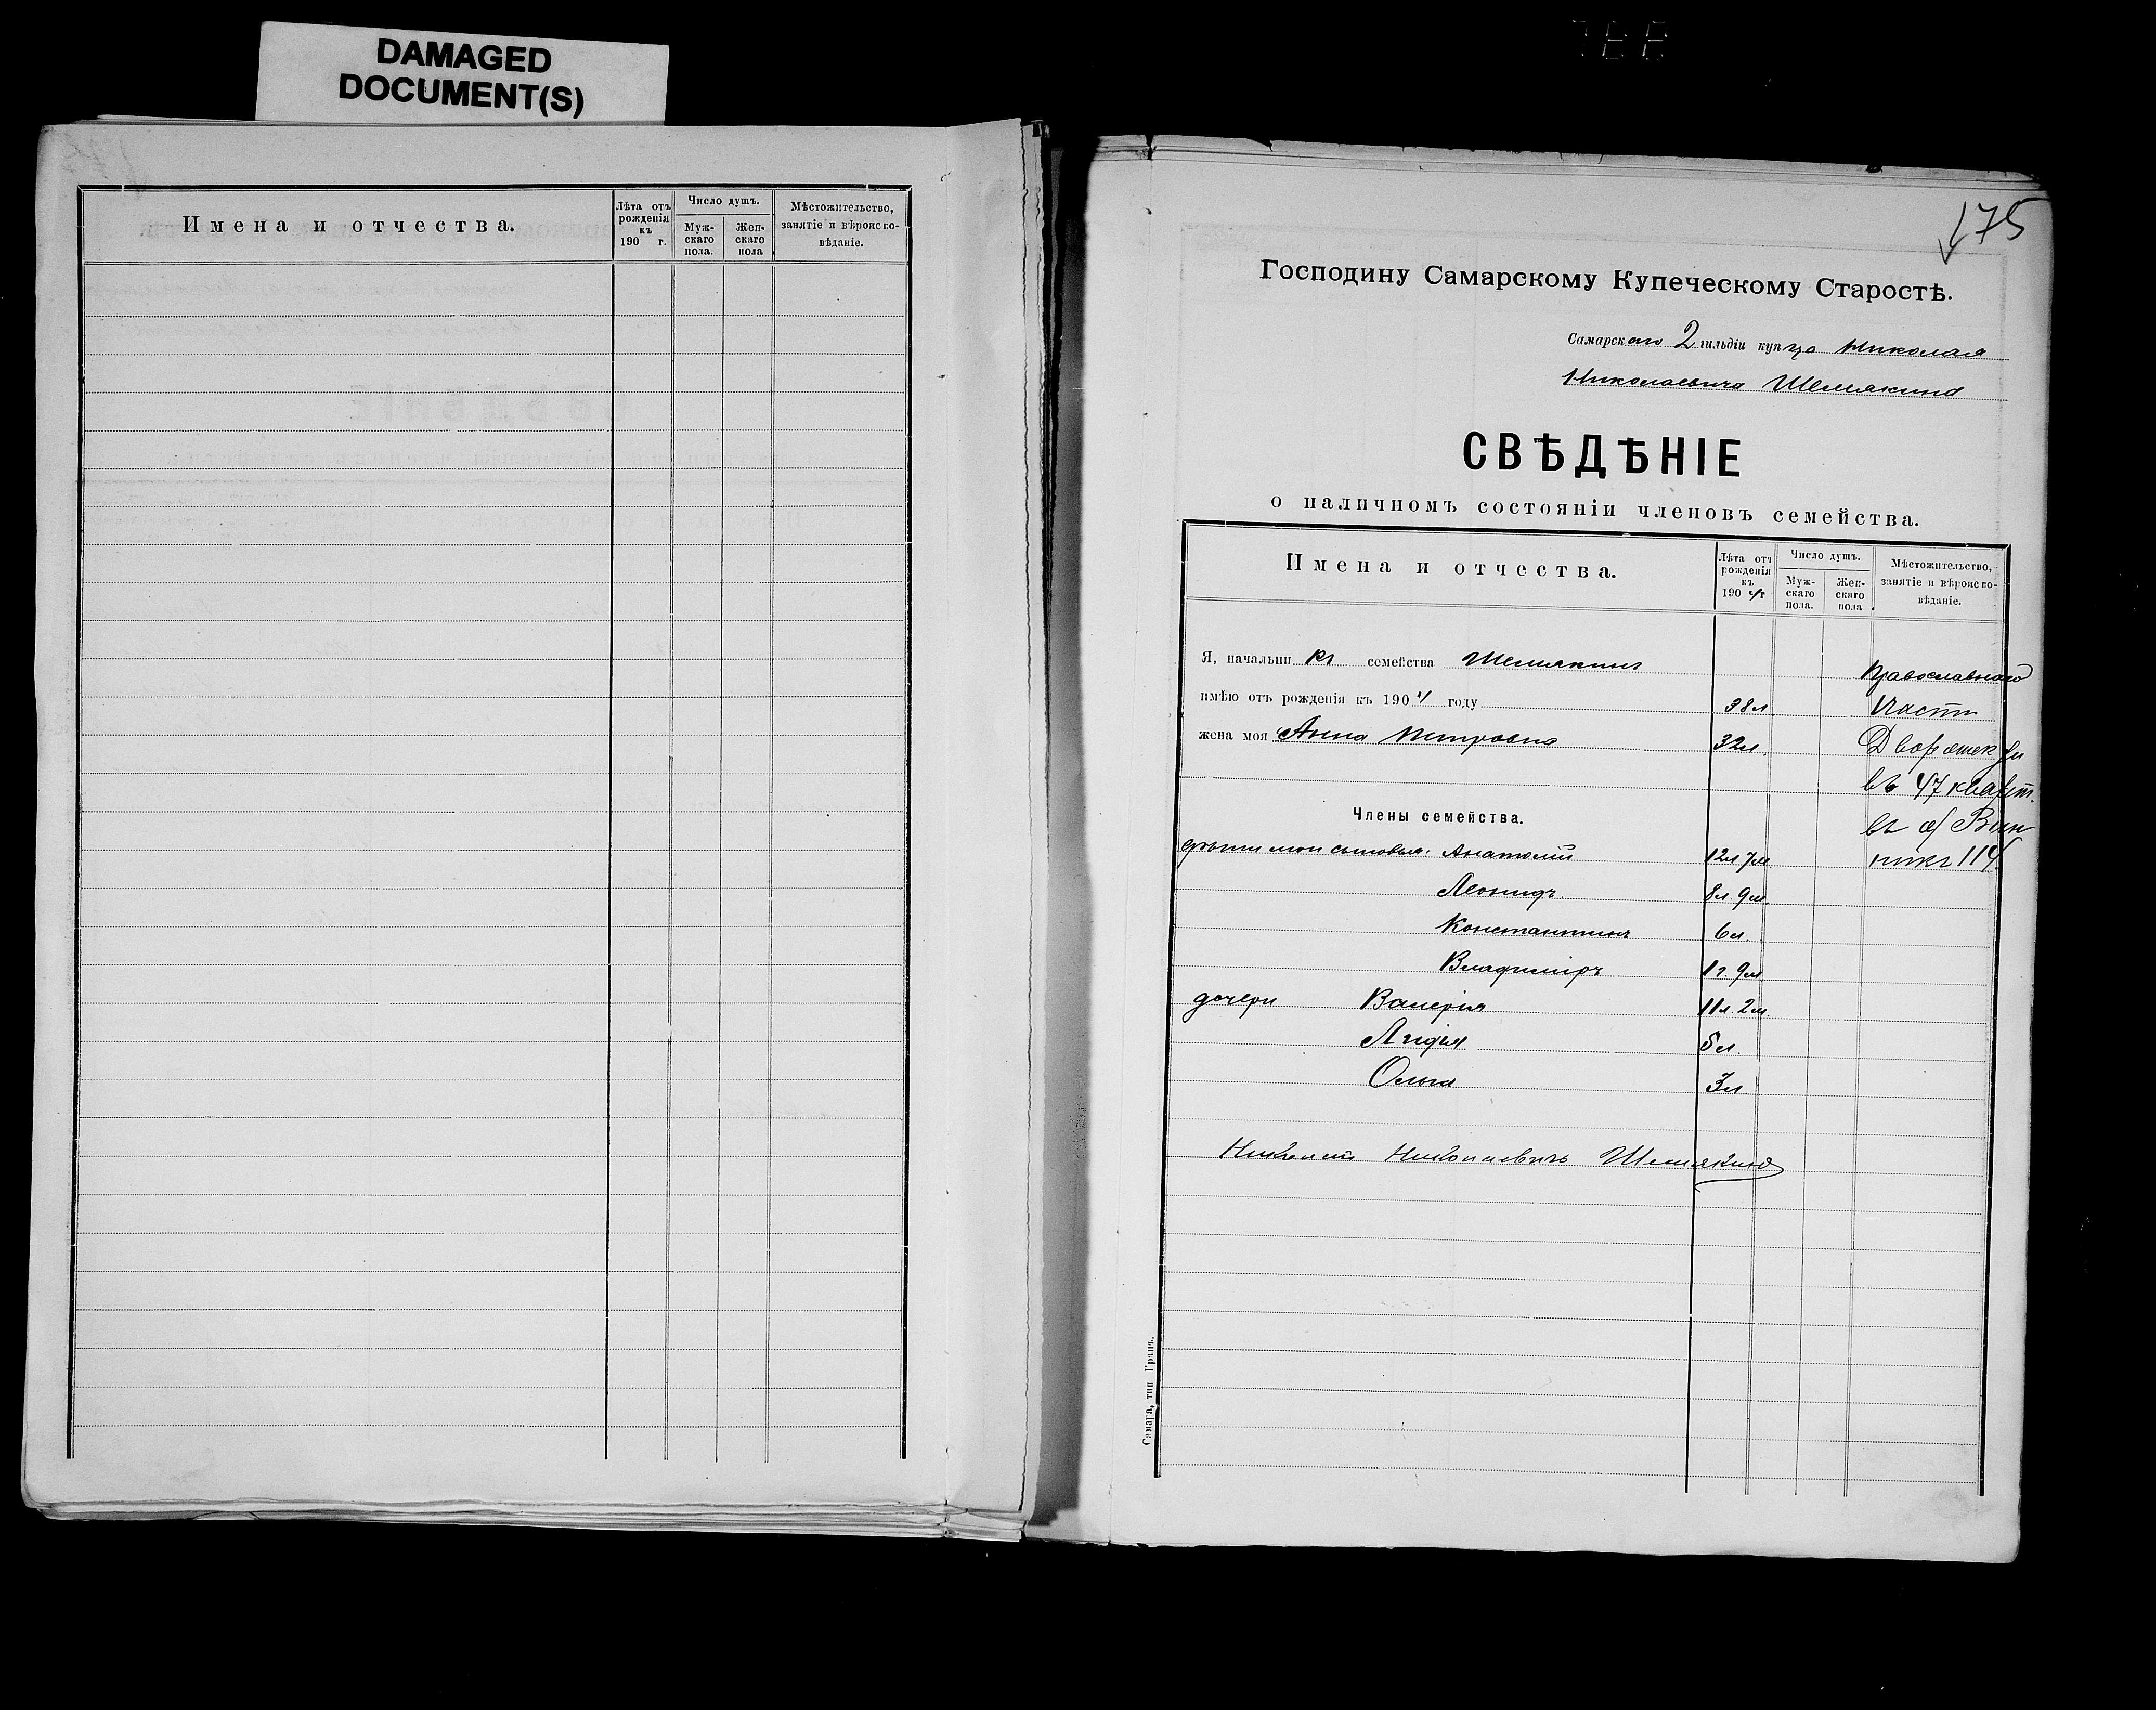 DAMAGED
DOCUMENT(S)
Имена и отчества.
Лѣта отъ рожденія къ 190 г.
Число душъ.
Мужскаго пола.
Женскаго пола
Мѣстожительство, занятіе и вѣроисповѣданіе.
175
Господину Самарскому Купеческому Старостѣ.
Самарскаго 2 гильдіи купца Николая
Николаевича Шемякина
СВѢДѢНІЕ
о наличномъ состояніи членовъ семейства.
Имена и отчества.
Лѣта отъ рожденія къ 1904 г
Число душъ.
Мужскаго пола.
Женскаго пола
Мѣстожительство, занятіе и вѣроисповѣданіе.
Я, начальникъ семейства Шемякинъ
Православнаго
имѣю отъ рожденія къ 1904 году 38л
жена моя Анна Петровна 32л.
въ 47 кварт.
Члены семейства.
дѣти мои сыновья: Анатолій 12л 7м
114
Леонидъ. 8л 9м.
Константинъ 6л.
Владиміръ 1г. 9м
дочери Валерія 11л. 2м.
Лидія 5л.
Ольга 3л.
Николай Николаевичъ Шемякинъ
Самара, тип Гранъ.